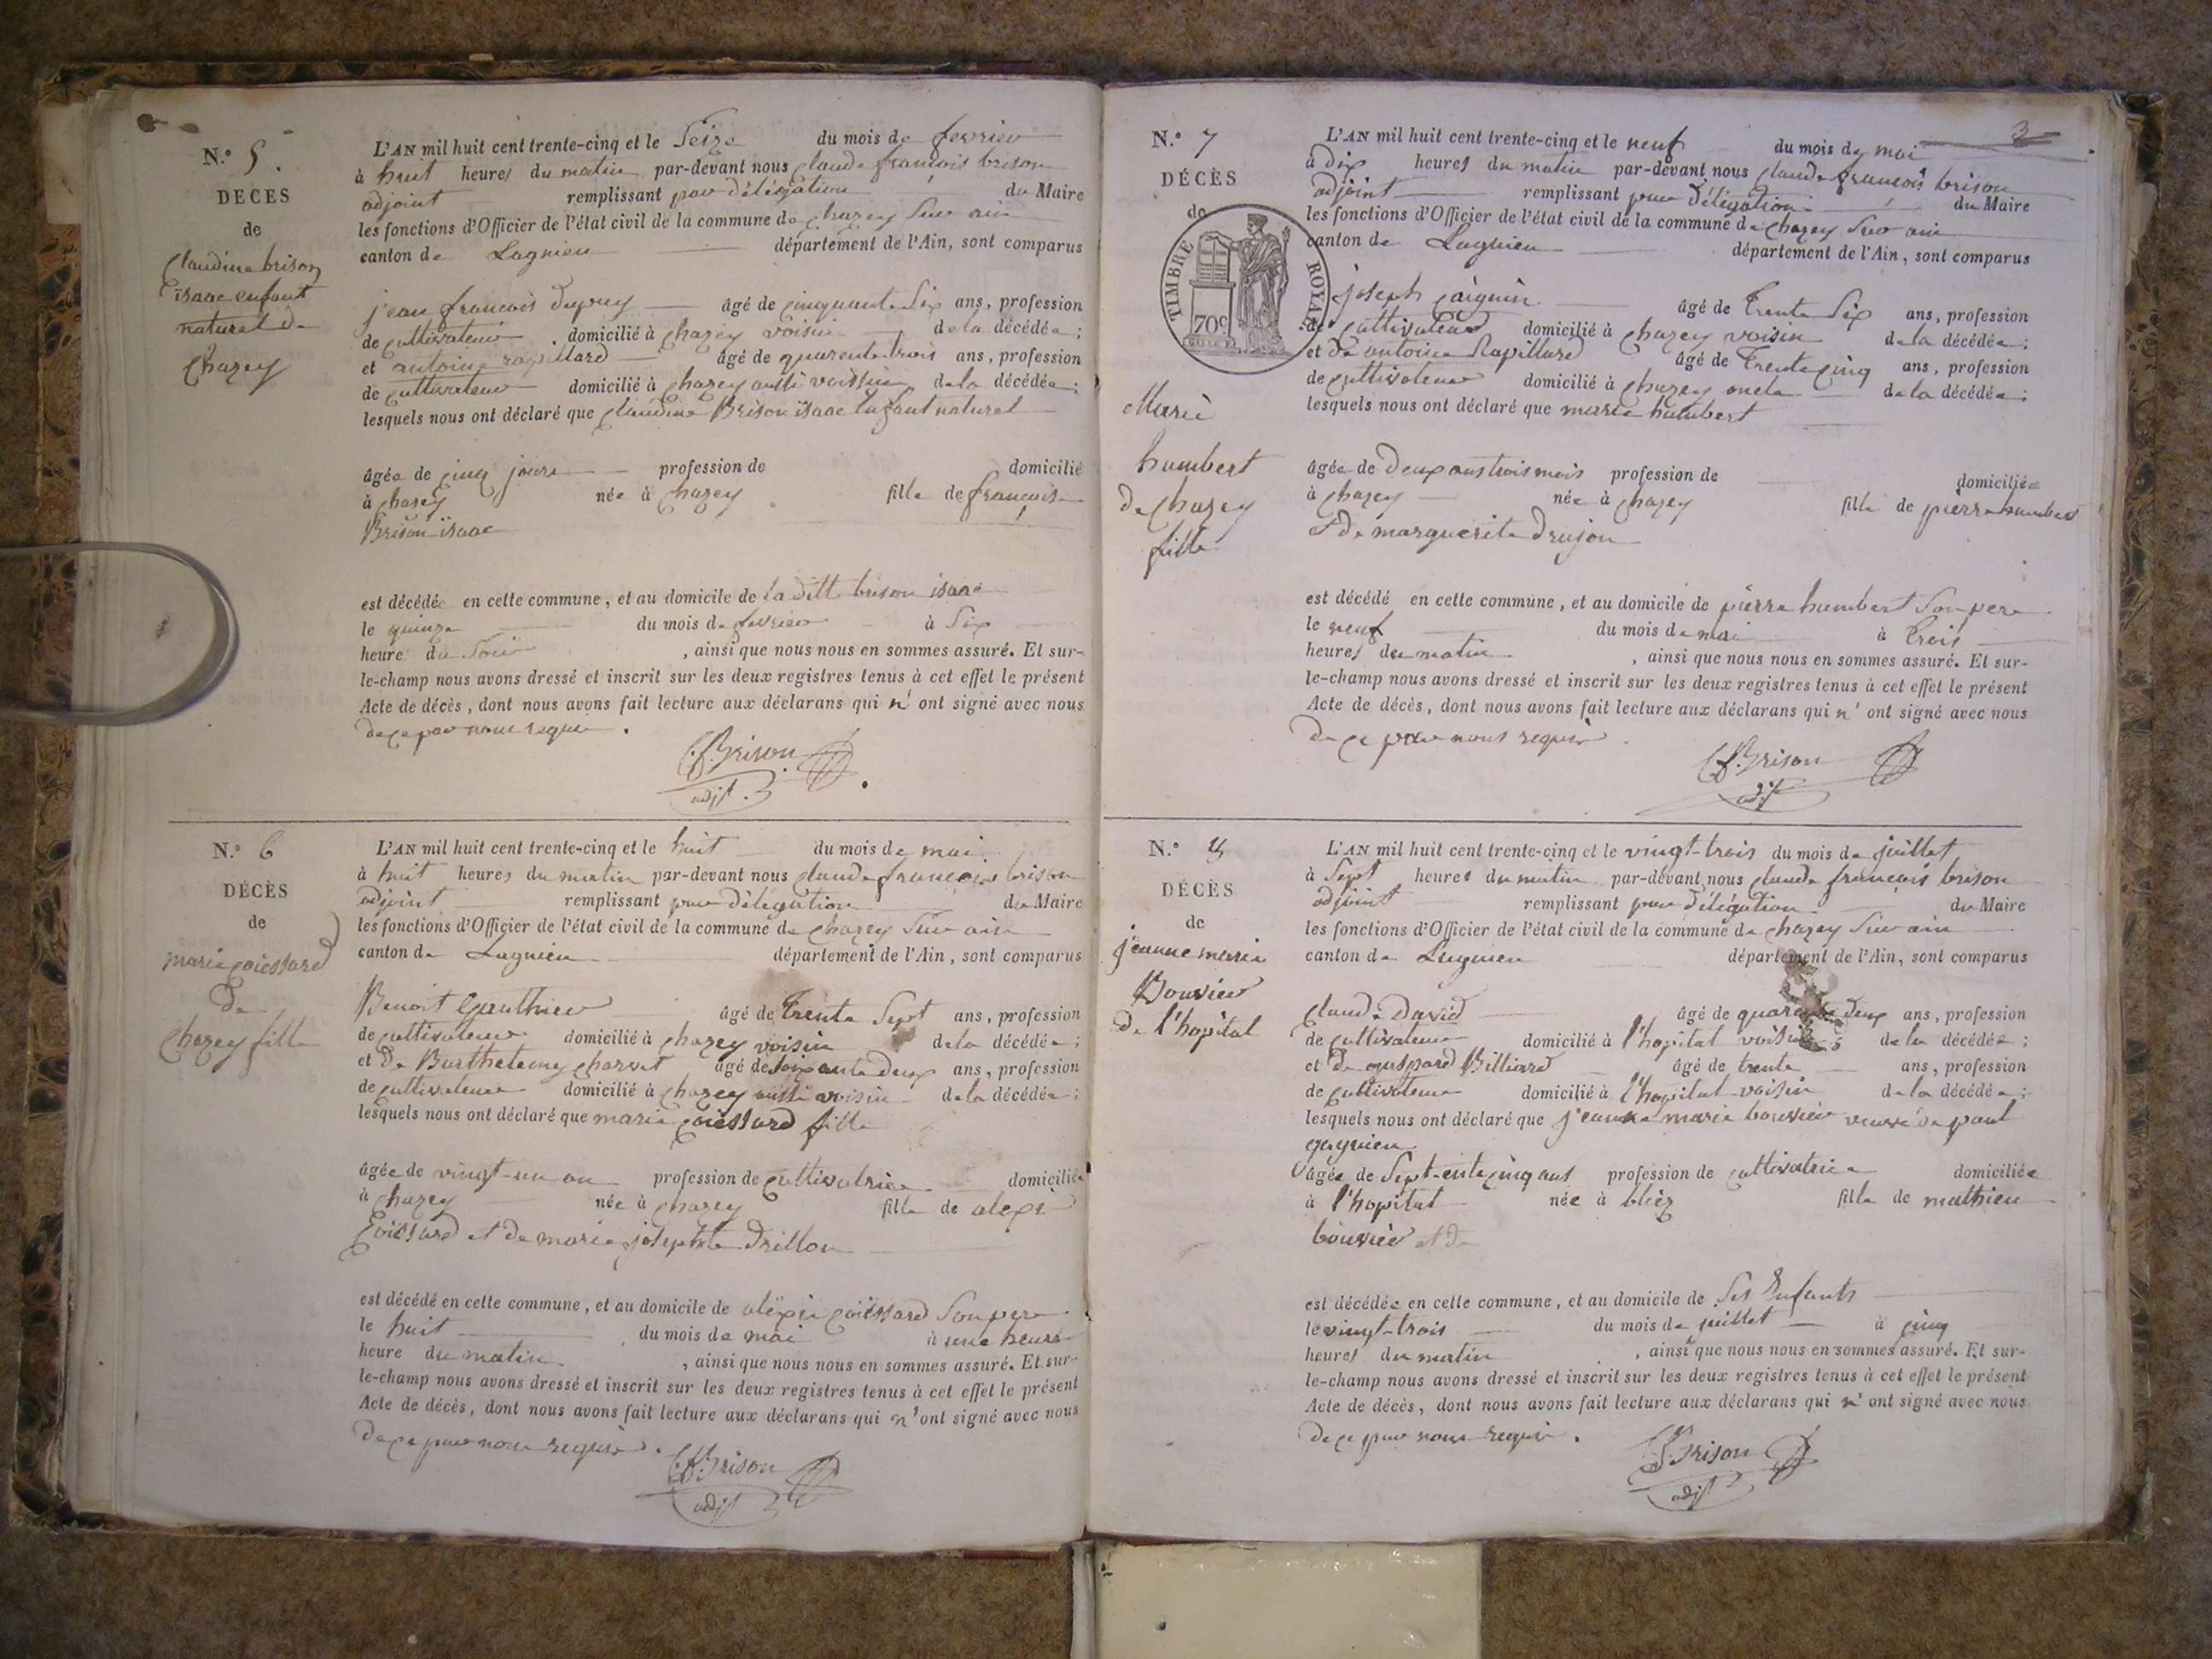 N.° 5.
DÉCÈS
de
Claudine brison
isaac enfant
naturel de
Chazey
L'AN mil huit cent trente-cinq et le Seize du mois de fevrier
à huit heures du matin par-devant nous Claude françois brison
adjoint remplissant par délégation du Maire
les fonctions d'Officier de l'état civil de la commune de chazey Sur ain
canton de Lagnieu département de l'Ain, sont comparus
jean françois dupuy âgé de cinquante Six ans, profession
de cultivateur domicilié à chazey voisin de la décédée;
et antoine rapillard âgé de quarente trois ans, profession
de cultivateur domicilié à chazey aussi voissin de la décédée;
lesquels nous ont déclaré que claudine Brison isaac enfant naturel
âgée de cinq jours profession de domicilié
à chazey née à chazey fille de françoise
Brison isaac
est décédée en cette commune, et au domicile de la ditt brison isaac
le quinze du mois de fevrier à Six
heure du Soir, ainsi que nous nous en sommes assuré. Et sur-
le-champ nous avons dressé et inscrit sur les deux registres tenus à cet effet le présent
Acte de décès, dont nous avons fait lecture aux déclarans qui n' ont signé avec nous
de ce par nous requis.
C.f. Brison
adjt.
N.° 6
DÉCÈS
de
marie coiessard
de
Chazey fille
L'AN mil huit cent trente-cinq et le huit du mois de mai
à huit heures du matin par-devant nous claude françois brison
adjoint remplissant par délégation du Maire
les fonctions d'Officier de l'état civil de la commune de chazey Sur ain
canton de Lagnieu département de l'Ain, sont comparus
Benoit Gauthier âgé de trente Sept ans, profession
de cultivateur domicilié à chazey voisin de la décédée;
et de Barthelemy charvet âgé de soixante deux ans, profession
de cultivateur domicilié à chazey aussi voisin de la décédée;
lesquels nous ont déclaré que marie coiessard fille
âgée de vingt-un an profession de cultivatrice domiciliée
à chazey née à chazey fille de alexi
Coiessard et de marie josephte drillon
est décédé en cette commune, et au domicile de alexi coiessard Son pere
le huit du mois de mai à une heure
heure du matin, ainsi que nous nous en sommes assuré. Et sur-
le-champ nous avons dressé et inscrit sur les deux registres tenus à cet effet le présent
Acte de décès, dont nous avons fait lecture aux déclarans qui n' ont signé avec nous
de ce par nous requis.
C.f. Brison
adjt
3
N.° 7
DÉCÈS
de
TIMBRE ROYAL
70c
Marie
humbert
de Chazey
fille
L'AN mil huit cent trente-cinq et le neuf du mois de mai
à dix heures du matin par-devant nous claude françois brison
adjoint remplissant par délégation du Maire
les fonctions d'Officier de l'état civil de la commune de chazey Sur ain
canton de Lagnieu département de l'Ain, sont comparus
joseph caignin âgé de trente Six ans, profession
de cultivateur domicilié à chazey voisin de la décédée;
et de antoine Rapillard âgé de trente cinq ans, profession
de cultivateur domicilié à chazey oncle de la décédée;
lesquels nous ont déclaré que marie humbert
âgée de deux ans trois mois profession de domiciliée
à chazey née à chazey fille de pierre humbert
et de marguerite drujon
est décédé en cette commune, et au domicile de pierre humbert Son pere
le neuf du mois de mai à trois
heures du matin, ainsi que nous nous en sommes assuré. Et sur-
le-champ nous avons dressé et inscrit sur les deux registres tenus à cet effet le présent
Acte de décès, dont nous avons fait lecture aux déclarans qui n' ont signé avec nous
de ce par nous requis.
C.f. Brison
adjt
N.° 8
DÉCÈS
de
jeanne marie
Bouvier
de l'hopital
L'AN mil huit cent trente-cinq et le vingt-trois du mois de juillet
à Sept heures du matin par-devant nous claude françois brison
adjoint remplissant par délégation du Maire
les fonctions d'Officier de l'état civil de la commune de chazey Sur ain
canton de Lagnieu département de l'Ain, sont comparus
Claude David âgé de quarante deux ans, profession
de cultivateur domicilié à l'hopital voisin de la décédée;
et de gaspard Billiard âgé de trente ans, profession
de cultivateur domicilié à l'hopital voisin de la décédée;
lesquels nous ont déclaré que jeanne marie bouvier veuve de paul
gagnieu
âgée de Sept-ente cinq ans profession de cultivatrice domiciliée
à l'hopital née à bliez fille de mathieu
bouvier et de
est décédée en cette commune, et au domicile de Ses Enfants
le vingt-trois du mois de juillet à cinq
heures du matin, ainsi que nous nous en sommes assuré. Et sur-
le-champ nous avons dressé et inscrit sur les deux registres tenus à cet effet le présent
Acte de décès, dont nous avons fait lecture aux déclarans qui n' ont signé avec nous
de ce par nous requis.
C.f. Brison
adjt